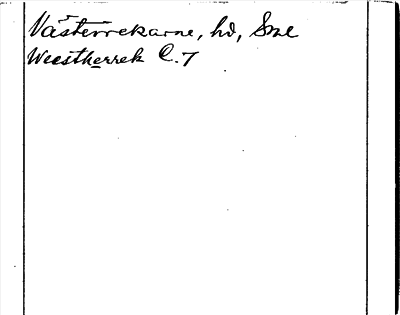 Västerrekarne, hd, Sml
Weestherrek C. 7